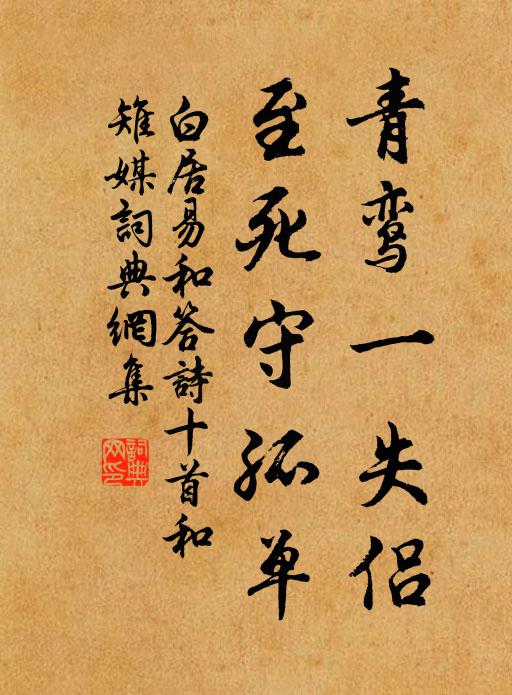 青鸾一失侣
至死守孤单
白居易和答詩十首和
雉媒詞典網集
詞典网印